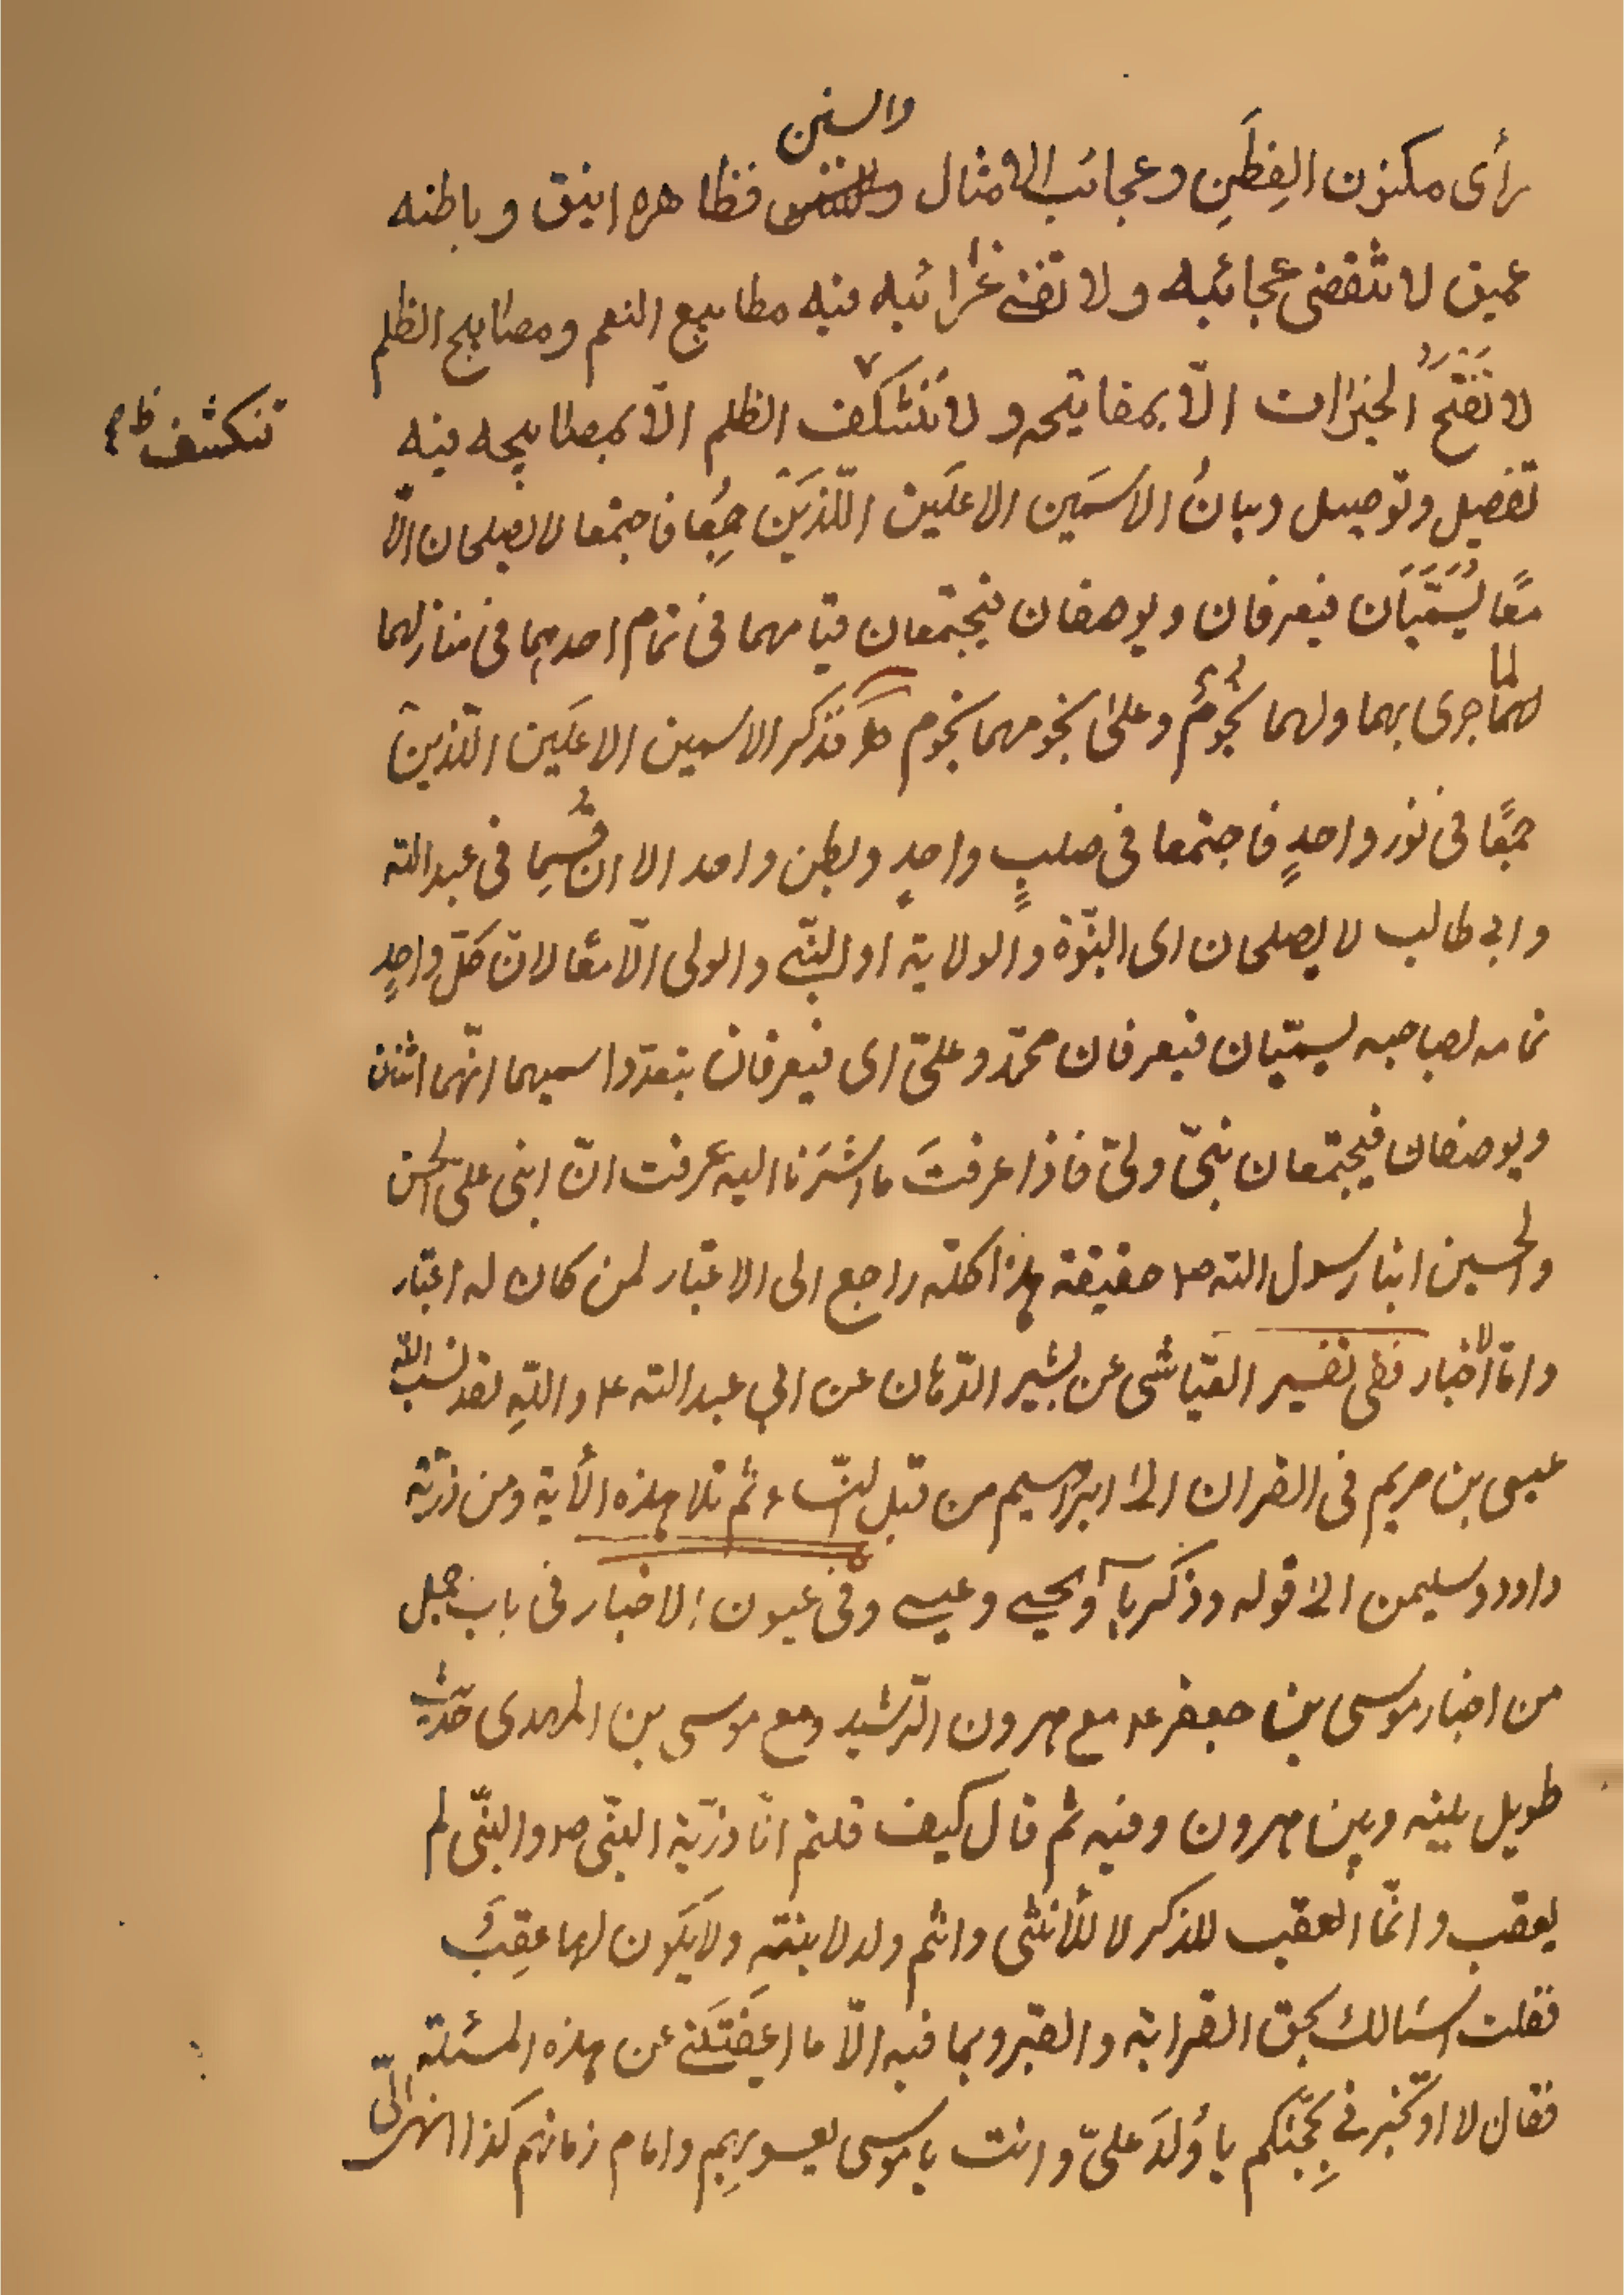 والسنن
رأى مكنون الفِطَنِ وعجائب الامثال والسنن فظاهره انيق وباطنه
عميق لا تنقضى عجائبه ولا تفنى غرائبه فيه مطابيع النعم ومصابيح الظلم
لا تُفْتَحُ الخيرات الّا بمفاتيحه ولا تُنْشكف الظلم الّا بمصابيحه فيه
تنكشف ظ م
تفصيل وتوصيل وبيانُ الاسمَين الاعلَين اللّذَيْنَ جُمِعَا فاجتمعا لا يصلحان الّا
معًا يُسَمَّيَان فيعرفان ويوصفان فيجتمعان قيامهما فى تمام احدهما فى منازلهما
لما
لهما جرى بهما ولهما نُجُومٌ وعلى نجومهما نجوم فذكر الاسمين الاعلَين اللّذين
جمعًا فى نور واحدٍ فاجتمعا فى صلبٍ واحدٍ وبطن واحد الا ان قُسِما فى عبدالله
وابى طالب لا يصلحان اى النبّوة والولاية او النبّى والولى الّا معًا لانّ كلّ واحدٍ
تمامه لصاحبه يسمّيان فيعرفان محمّد وعلىّ اى فيعرفان بتعدّد اسميهما انّهما اثنان
ويوصفان فيجتمعان نبىّ ولىّ فاذا عرفتَ ما اشَرْنا اليه عرفت انّ ابنى علىّ الحسن
والحسين ابنا رسول الله ص حقيقة هذا كلّه راجع الى الاعتبار لمن كان له اعتبار
وامّا الأخبار ففى تفسير العيّاشى عن بشير الدّهان عن ابى عبدالله ع والله لقد نسب الله
عيسى بن مريم فى القران الى ابراهيم من قبل النّساء ثم تلا هذه الأية ومن ذرّيّته
داود وسليمن الى قوله وذكريّا ويحيى وعيسى وفى عيون الاخبار فى باب جمل
من اخبار موسى بن جعفر ع مع هرون الرّشيد ومع موسى بن المهدى حديث
طويل بينه وبين هرون وفيه ثم قال كيف قلتم انّا ذرّيّة النبّى ص والنبّى لم
يعقب وانّما العقب للذكر لا للأنثى وانتم ولد لابنته ولا يكون لها عقِبٌ
فقلت اسئالك بحق القرابة والقبر وبما فيه الّا ما اعفَيْتَنى عن هذه المسئلة
فقال لا او تخبرنى بحجّتكم يا وُلدَ علىّ وانت يا موسى يعسوبهم وامام زمانهم كذا انهى الىّ